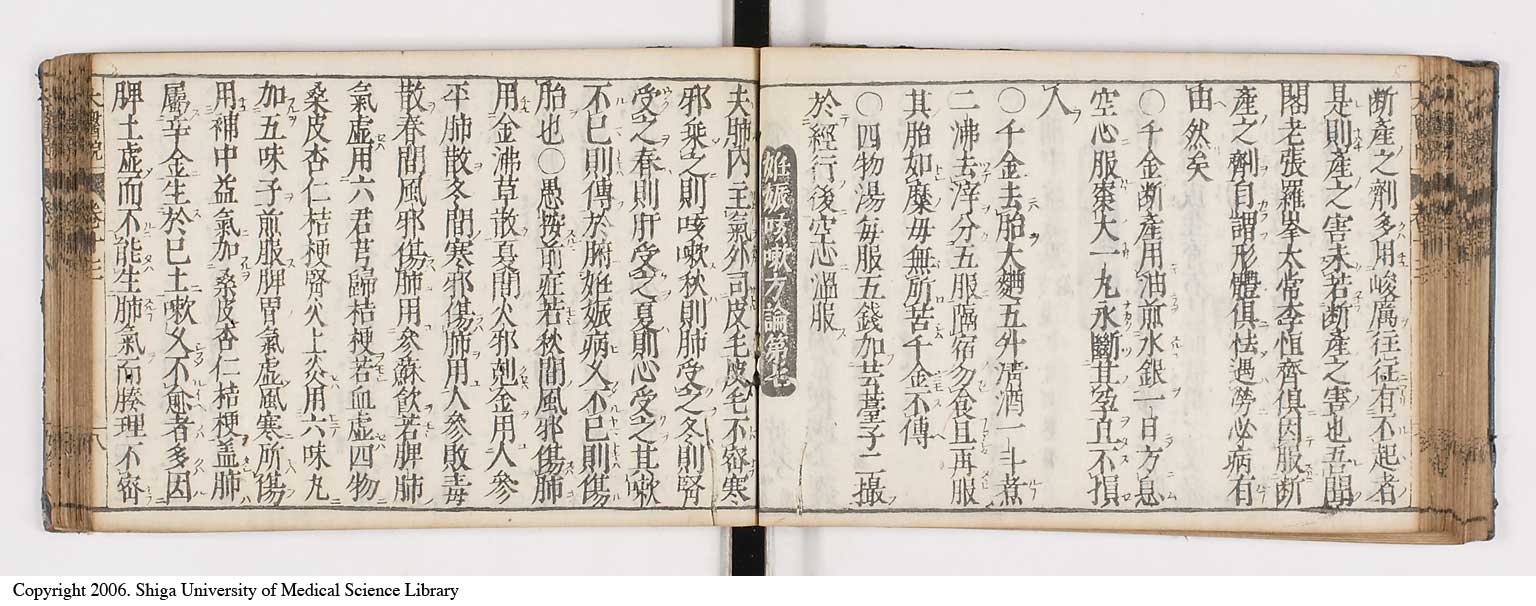 斷產之劑多用峻厲往往有不起者
是則產之害未若斷產之害也吾聞
閣老張羅峯太常李恆齊俱因服斷
產之劑自謂形體俱怯遇勞必病有
由然矣
〇千金斷產用油煎水銀一日方息
空心服棗大一丸永斷其孕且不損
人
〇千金去胎大麯五升清酒一斗煮
二沸去滓分五服隔宿勿食旦再服
其胎如糜母無所苦千金不傳
〇四物湯每服五錢加芸薹子二撮
於經行後空心溫服
妊娠咳嗽方論第七
夫肺內主氣外司皮毛皮毛不密寒
邪乘之則咳嗽秋則肺受之冬則腎
受之春則肝受之夏則心受之其嗽
不已則傳於腑妊娠病久不已則傷
胎也〇愚按前症若秋間風邪傷肺
用金沸草散夏間火邪剋金用人參
平肺散冬間寒邪傷肺用人參敗毒
散春間風邪傷肺用參蘇飲若脾肺
氣虛用六君芎歸桔梗若血虛四物
桑皮杏仁桔梗腎火上炎用六味丸
加五味子煎服脾胃氣虛風寒所傷
用補中益氣加桑皮杏仁桔梗蓋肺
屬辛金生於己土嗽久不愈者多因
脾土虛而不能生肺氣而腠理不密
八
Copyright 2006. Shiga University of Medical Science Library